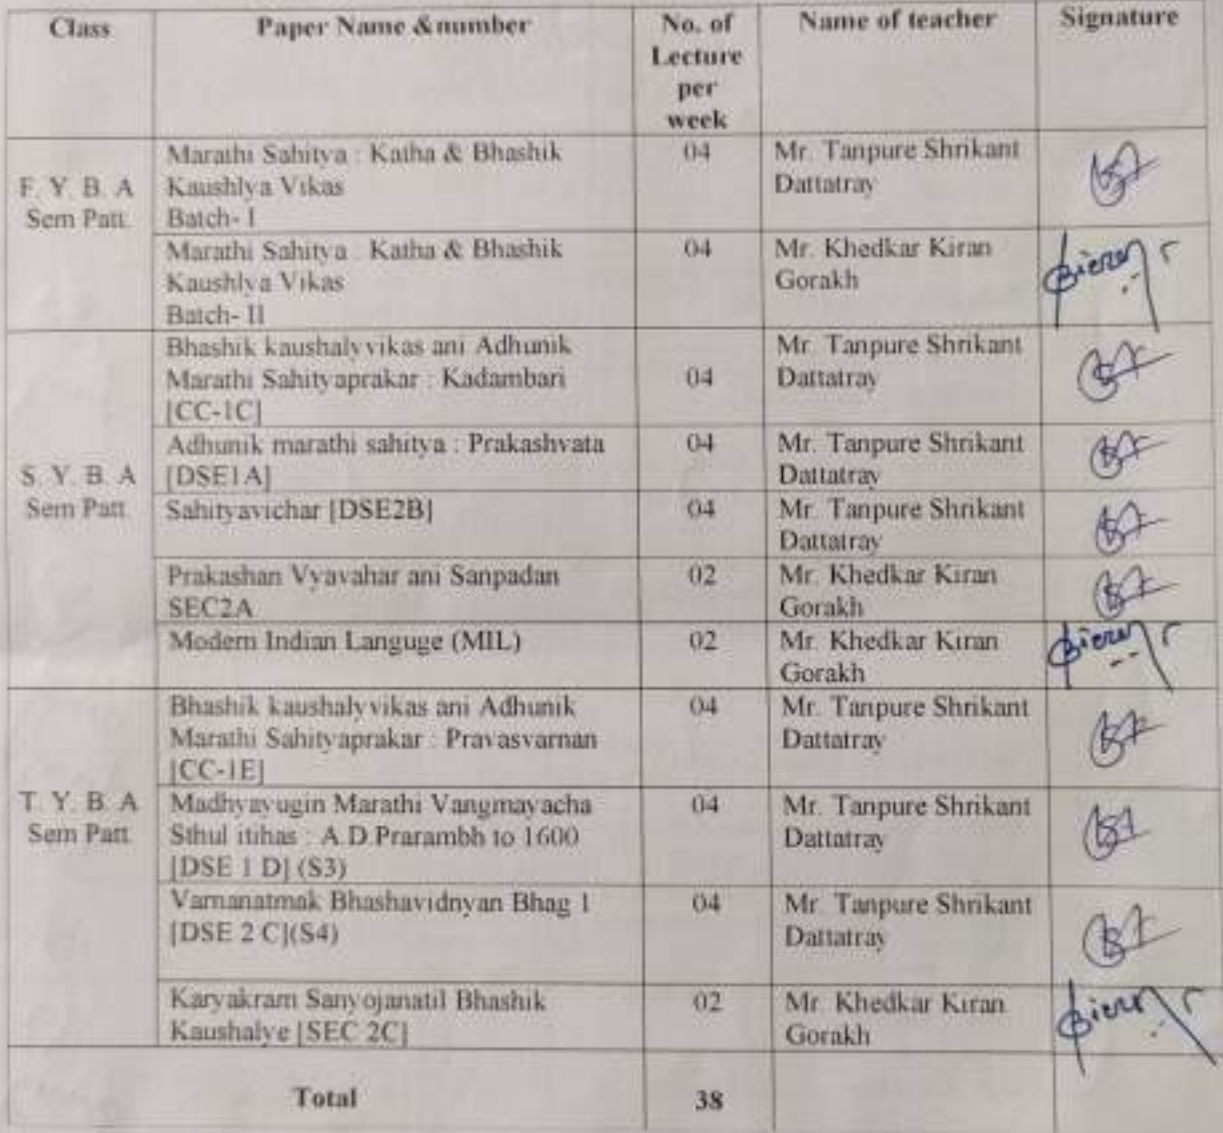 Class Paper Name &number No. of Lecture per week Name of teacher Signature
F. Y. B. A Sem Patt.
Marathi Sahitya : Katha & Bhashik
Kaushlya Vikas
Batch- I
04
Mr. Tanpure Shrikant
Dattatray
Marathi Sahitya : Katha & Bhashik
Kaushlya Vikas
Batch- II
04
Mr. Khedkar Kiran
Gorakh
S. Y. B. A
Sem Patt.
Bhashik kaushalyvikas ani Adhunik
Marathi Sahityaprakar : Kadambari
[CC-1C]
04
Mr. Tanpure Shrikant
Dattatray
Adhunik marathi sahitya : Prakashvata
[DSE1A]
04
Mr. Tanpure Shrikant
Dattatray
Sahityavichar [DSE2B]
04
Mr. Tanpure Shrikant
Dattatray
Prakashan Vyavahar ani Sanpadan
SEC2A
02
Mr. Khedkar Kiran
Gorakh
Modern Indian Languge (MIL)
02
Mr. Khedkar Kiran
Gorakh
T. Y. B. A
Sem Patt.
Bhashik kaushalyvikas ani Adhunik
Marathi Sahityaprakar : Pravasvarnan
[CC-1E]
04
Mr. Tanpure Shrikant
Dattatray
Madhyayugin Marathi Vangmayacha
Sthul itihas : A.D.Prarambh to 1600
[DSE 1 D] (S3)
04
Mr. Tanpure Shrikant
Dattatray
Varnanatmak Bhashavidnyan Bhag 1
[DSE 2 C](S4)
04
Mr. Tanpure Shrikant
Dattatray
Karyakram Sanyojanatil Bhashik
Kaushalye [SEC 2C]
02
Mr. Khedkar Kiran
Gorakh
Total 38